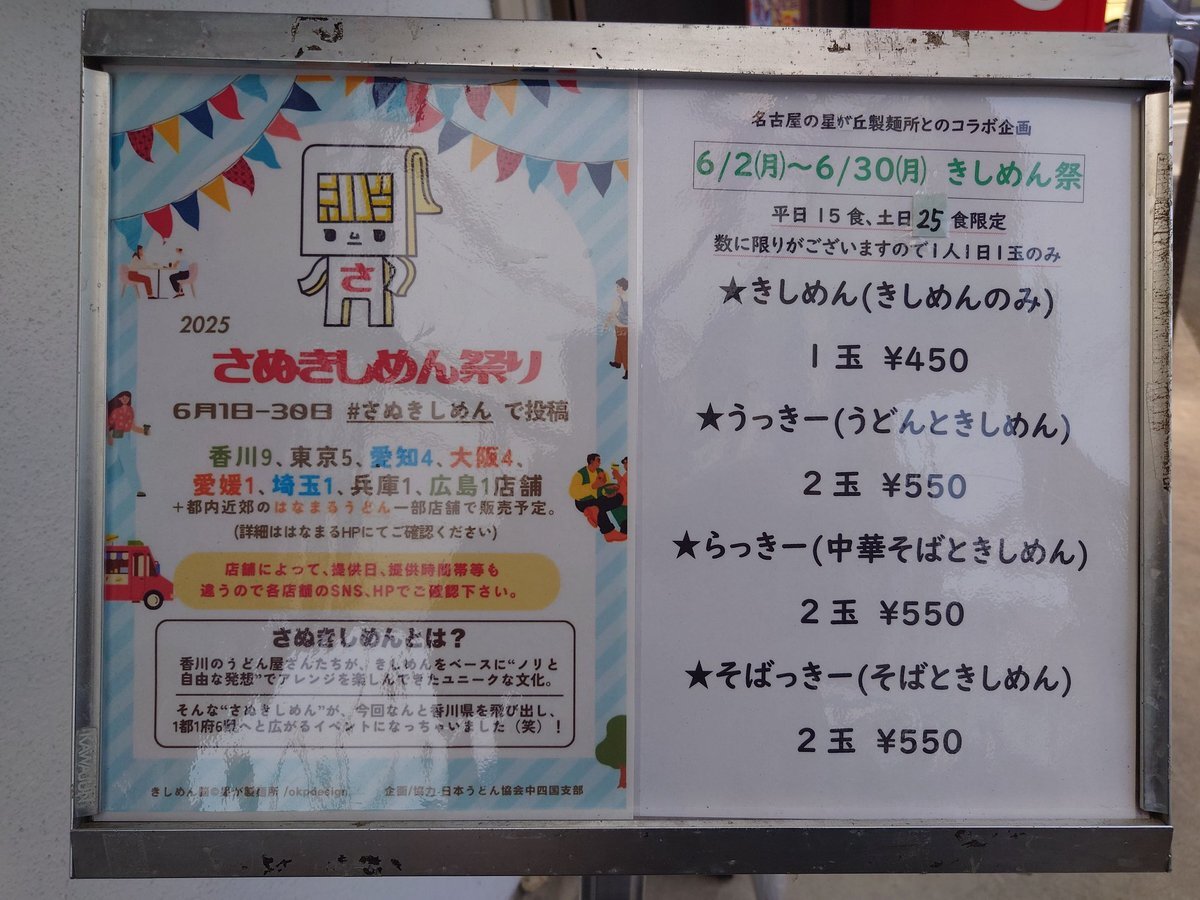 さ
2025
さぬきしめん祭り
6月1日-30日 #さぬきしめん で投稿
香川9、東京5、愛知4、大阪4、
愛媛1、埼玉1、兵庫1、広島1店舗
+都内近郊のはなまるうどん一部店舗で販売予定。
(詳細ははなまるHPにてご確認ください)
店舗によって、提供日、提供時間帯等も
違うので各店舗のSNS、HPでご確認下さい。
さぬきしめんとは?
香川のうどん屋さんたちが、きしめんをベースに“ノリと
自由な発想”でアレンジを楽しんできたユニークな文化。
そんな“さぬきしめん”が、今回なんと香川県を飛び出し、
1都1府6県へと広がるイベントになっちゃいました(笑)!
きしめん
製麺所 /okpdesign
企画/協力 日本うどん協会中四国支部
名古屋の星が丘製麺所とのコラボ企画
6/2(月)〜6/30(月) きしめん祭
平日15食、土日25食限定
数に限りがございますので1人1日1玉のみ
★きしめん(きしめんのみ)
1玉 ¥450
★うっきー(うどんときしめん)
2玉 ¥550
★らっきー(中華そばときしめん)
2玉 ¥550
★そばっきー(そばときしめん)
2玉 ¥550